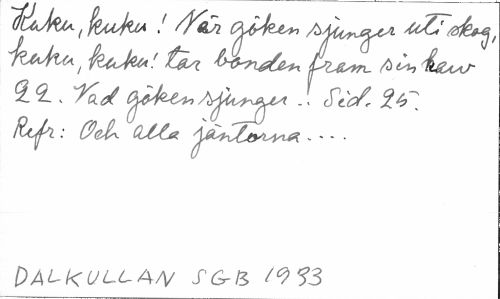 Kuku, kuku! När göken sjunger uti skog,
kuku, kuku! tar bonden fram sin harv
22. Vad göken sjunger.. Sid. 25.
Refr: Och alla jäntorna....
DALKULLAN SGB 1933